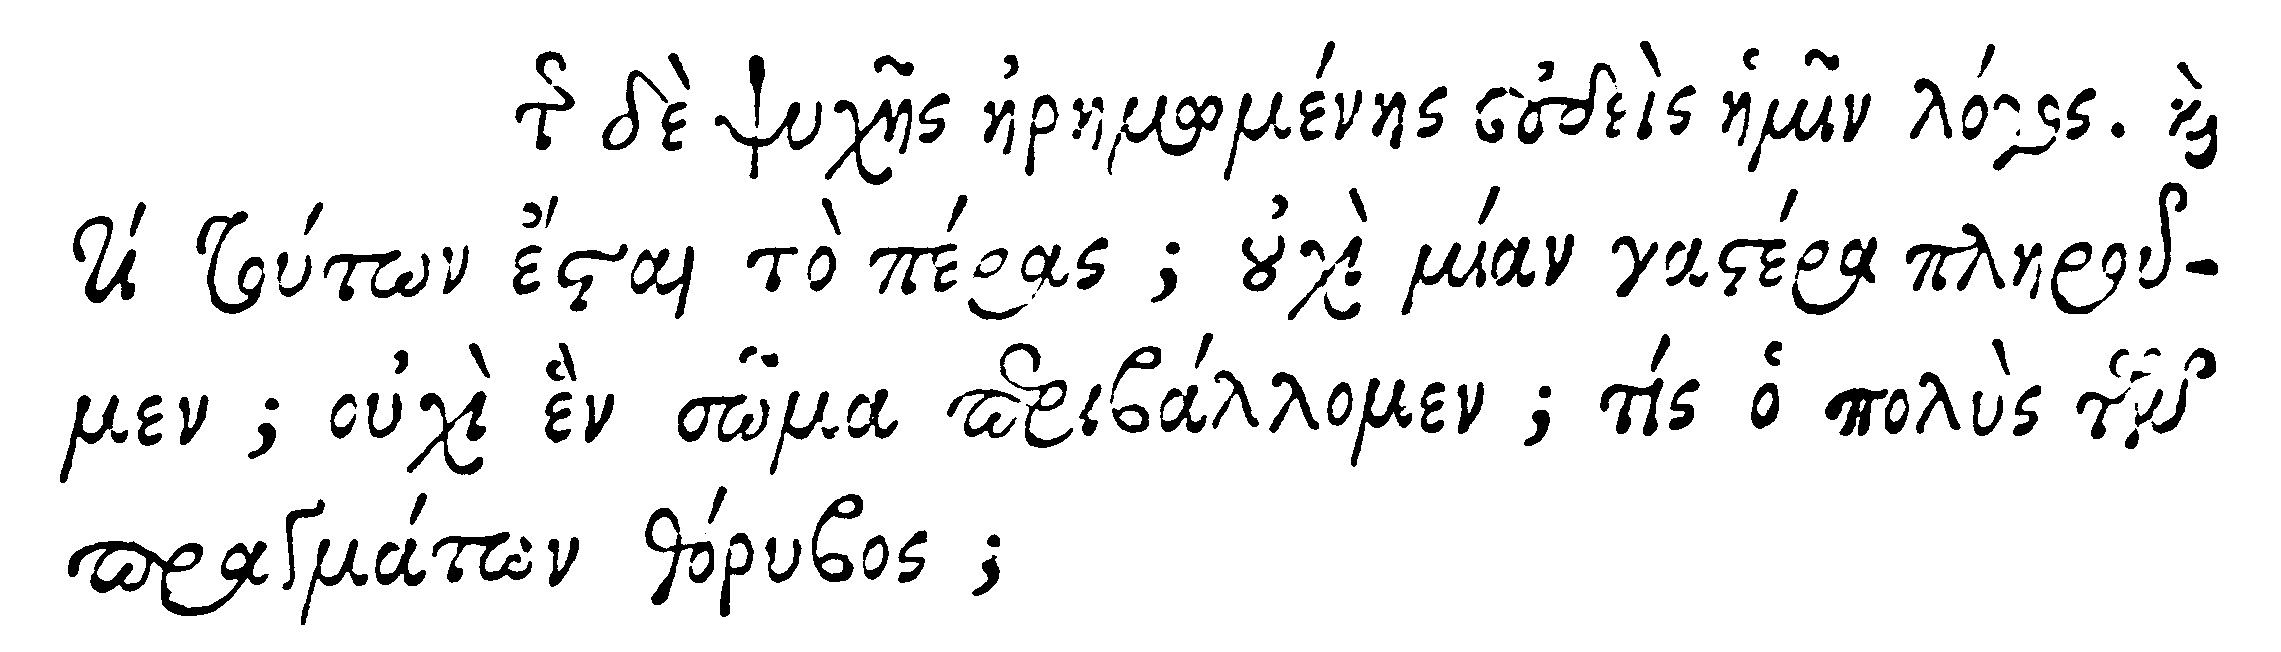 τῆς δὲ ψυχῆς ἠρημωμένης οὐδεὶς ἡμῖν λόγος. καὶ
τί τούτων ἔσται τὸ πέρας ; οὐχὶ μίαν γαστέρα πληροῦ-
μεν ; οὐχὶ ἓν σῶμα περιβάλλομεν ; τίς ὁ πολὺς τῶν
πραγμάτων θόρυβος ;